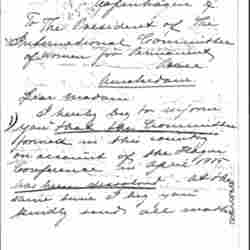 Copenhagen
To The President of The
International Committee
of Women for Permanent
Peace
Amsterdam
Dear Madam
I hereby beg to inform
you that the Committee
formed in this country
on account of the
Conference in April 1915
has been dissolved. At the
same time I beg you
kindly send all